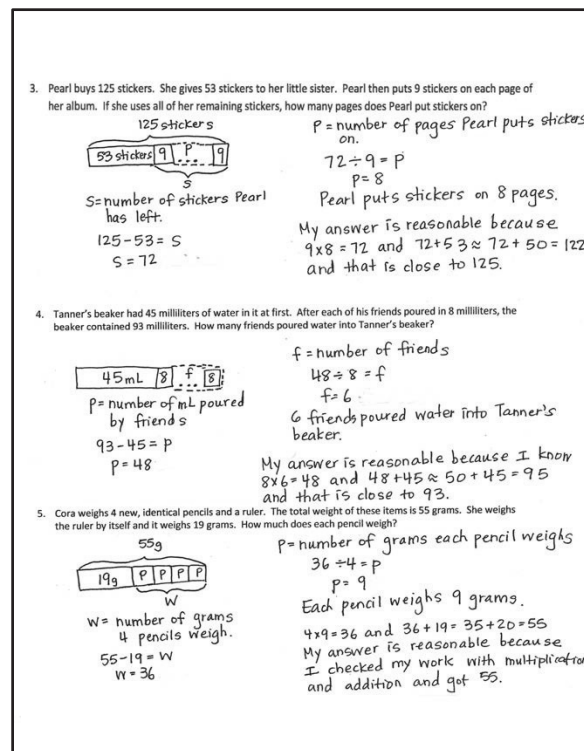 3. Pearl buys 125 stickers. She gives 53 stickers to her little sister. Pearl then puts 9 stickers on each page of
her album. If she uses all of her remaining stickers, how many pages does Pearl put stickers on?
125 stickers
53 stickers 9 P ... 9
S
S=number of stickers Pearl
has left.
125-53= S
S=72
P=number of pages Pearl puts stickers
on.
72÷9=P
P=8
Pearl puts stickers on 8 pages.
My answer is reasonable because
9x8=72 and 72+53≈72+50=122
and that is close to 125.
4. Tanner's beaker had 45 milliliters of water in it at first. After each of his friends poured in 8 milliliters, the
beaker contained 93 milliliters. How many friends poured water into Tanner's beaker?
45mL 8 f ... 8
P=number of mL poured
by friends
93-45=P
P=48
f=number of friends
48÷8=f
f=6
6 friends poured water into Tanner's
beaker.
My answer is reasonable because I know
8x6=48 and 48+45≈50+45=95
and that is close to 93.
5. Cora weighs 4 new, identical pencils and a ruler. The total weight of these items is 55 grams. She weighs
the ruler by itself and it weighs 19 grams. How much does each pencil weigh?
55g
19g P P P P
W
W= number of grams
4 pencils weigh.
55-19=W
W=36
P=number of grams each pencil weighs
36÷4=P
P=9
Each pencil weighs 9 grams.
4x9=36 and 36+19=35+20=55
My answer is reasonable because
I checked my work with multiplication
and addition and got 55.